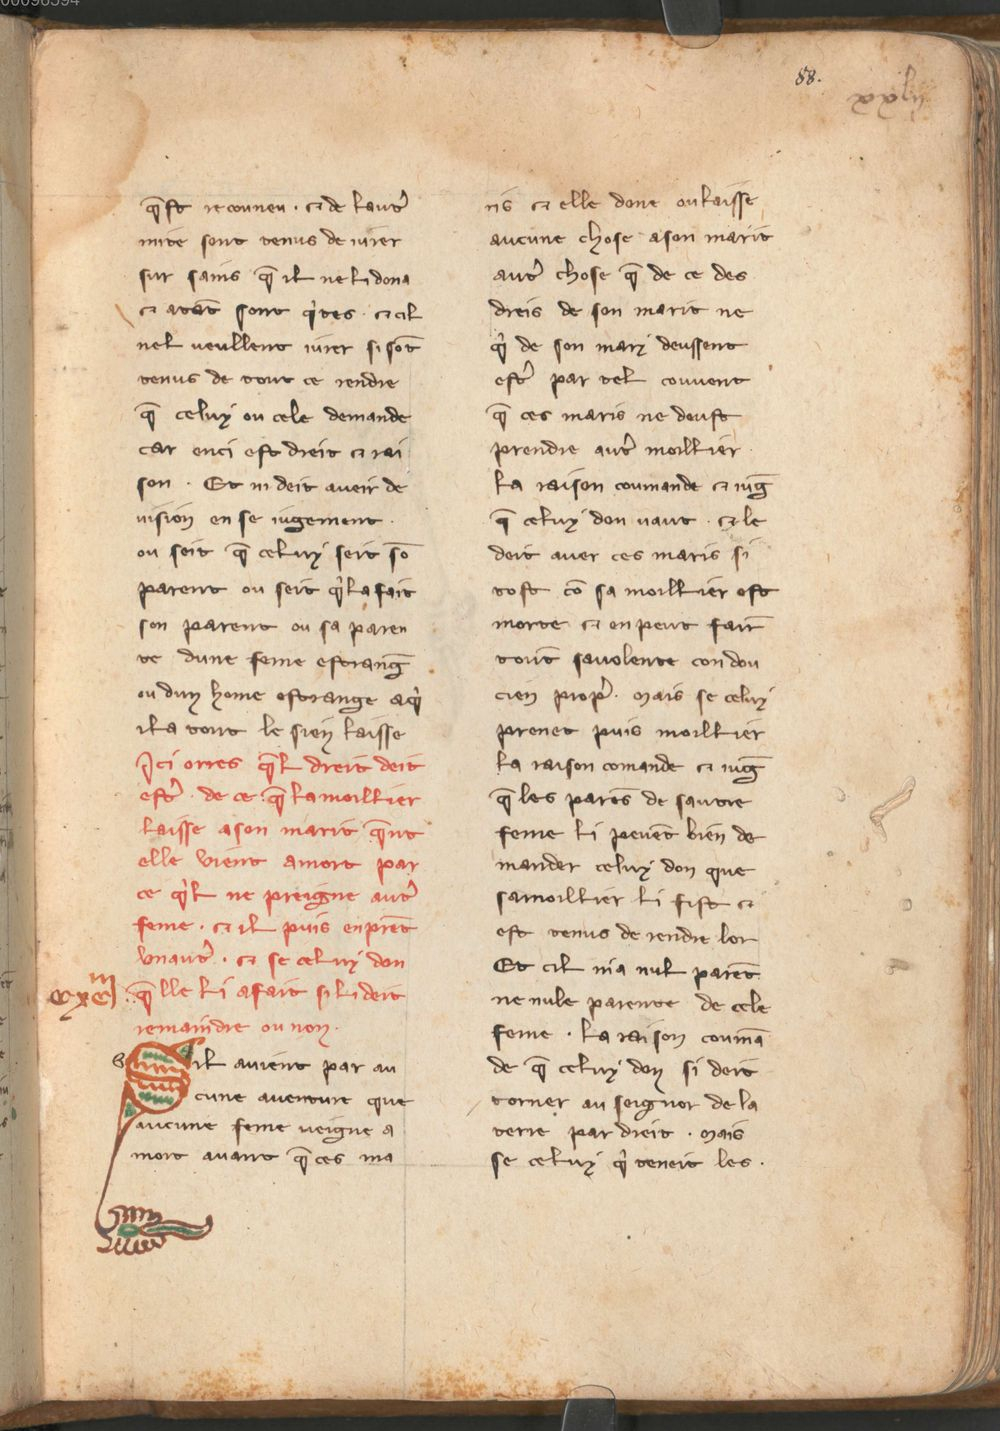 00096394
88.
xxlij
q̄st reconneu · et de lautr̓
mite sont tenus de iurer
sur sains q̄ il ne li dona
et atāt sont q̓tes · et cil
nel ueullent iurer si sōt
tenus de tout ce rendre
q̄ celuy ou cele demande
car enci est dreit et rai
son · Et ni deit aueir de
uision en se iugement ·
ou seit q̄ celuy seit sō
parent ou seit q̓ la fait
son parent ou sa paren
te dune feme estranḡ
ou dun home estrange aq̓
il a tout le sien laisse
Ici orres q̄l dreit deit
estr̓ · de ce q̄ la moillier
laisse a son marit q̄nt
elle vient a mort par
ce q̓l ne preigne autr̓
feme · et il puis en prēt
vn autr̓ · et se celuy don
q̄ lle li a fait si li deit
remaindre ou non ·
s
Sil auient par au
cune auenture que
aucune feme ueigne a
mort auant q̄ ces ma
ris et elle done ou laisse
aucune chose a son marit
autr̓ chose q̄ de ce des
dreis de son marit ne
q̓ de son mary deussent
estr̓ par tel couuent
q̄ ces maris ne deust
prendre autr̓ moillier ·
La raison coumande et iuḡ
q̄ celuy don uaut · et le
deit auer ces maris si
tost cō sa moillier est
morte et en peut fair̄
tout̄ sa uolente con dou
cien propr̓ · Mais se celuy
prenet puis moillier
la raison comande et iuḡ
q̄ les parēs de sautre
feme li peuēt bien de
mander celuy don que
sa moillier li fist et
est tenus de rendre lor
Et cil nia nul parēt
ne nule parente de cele
feme · la raison coumā
de q̄ celuy don si deit
torner au seignor de la
terre par dreit · Mais
se celuy q̓ teneit les ·